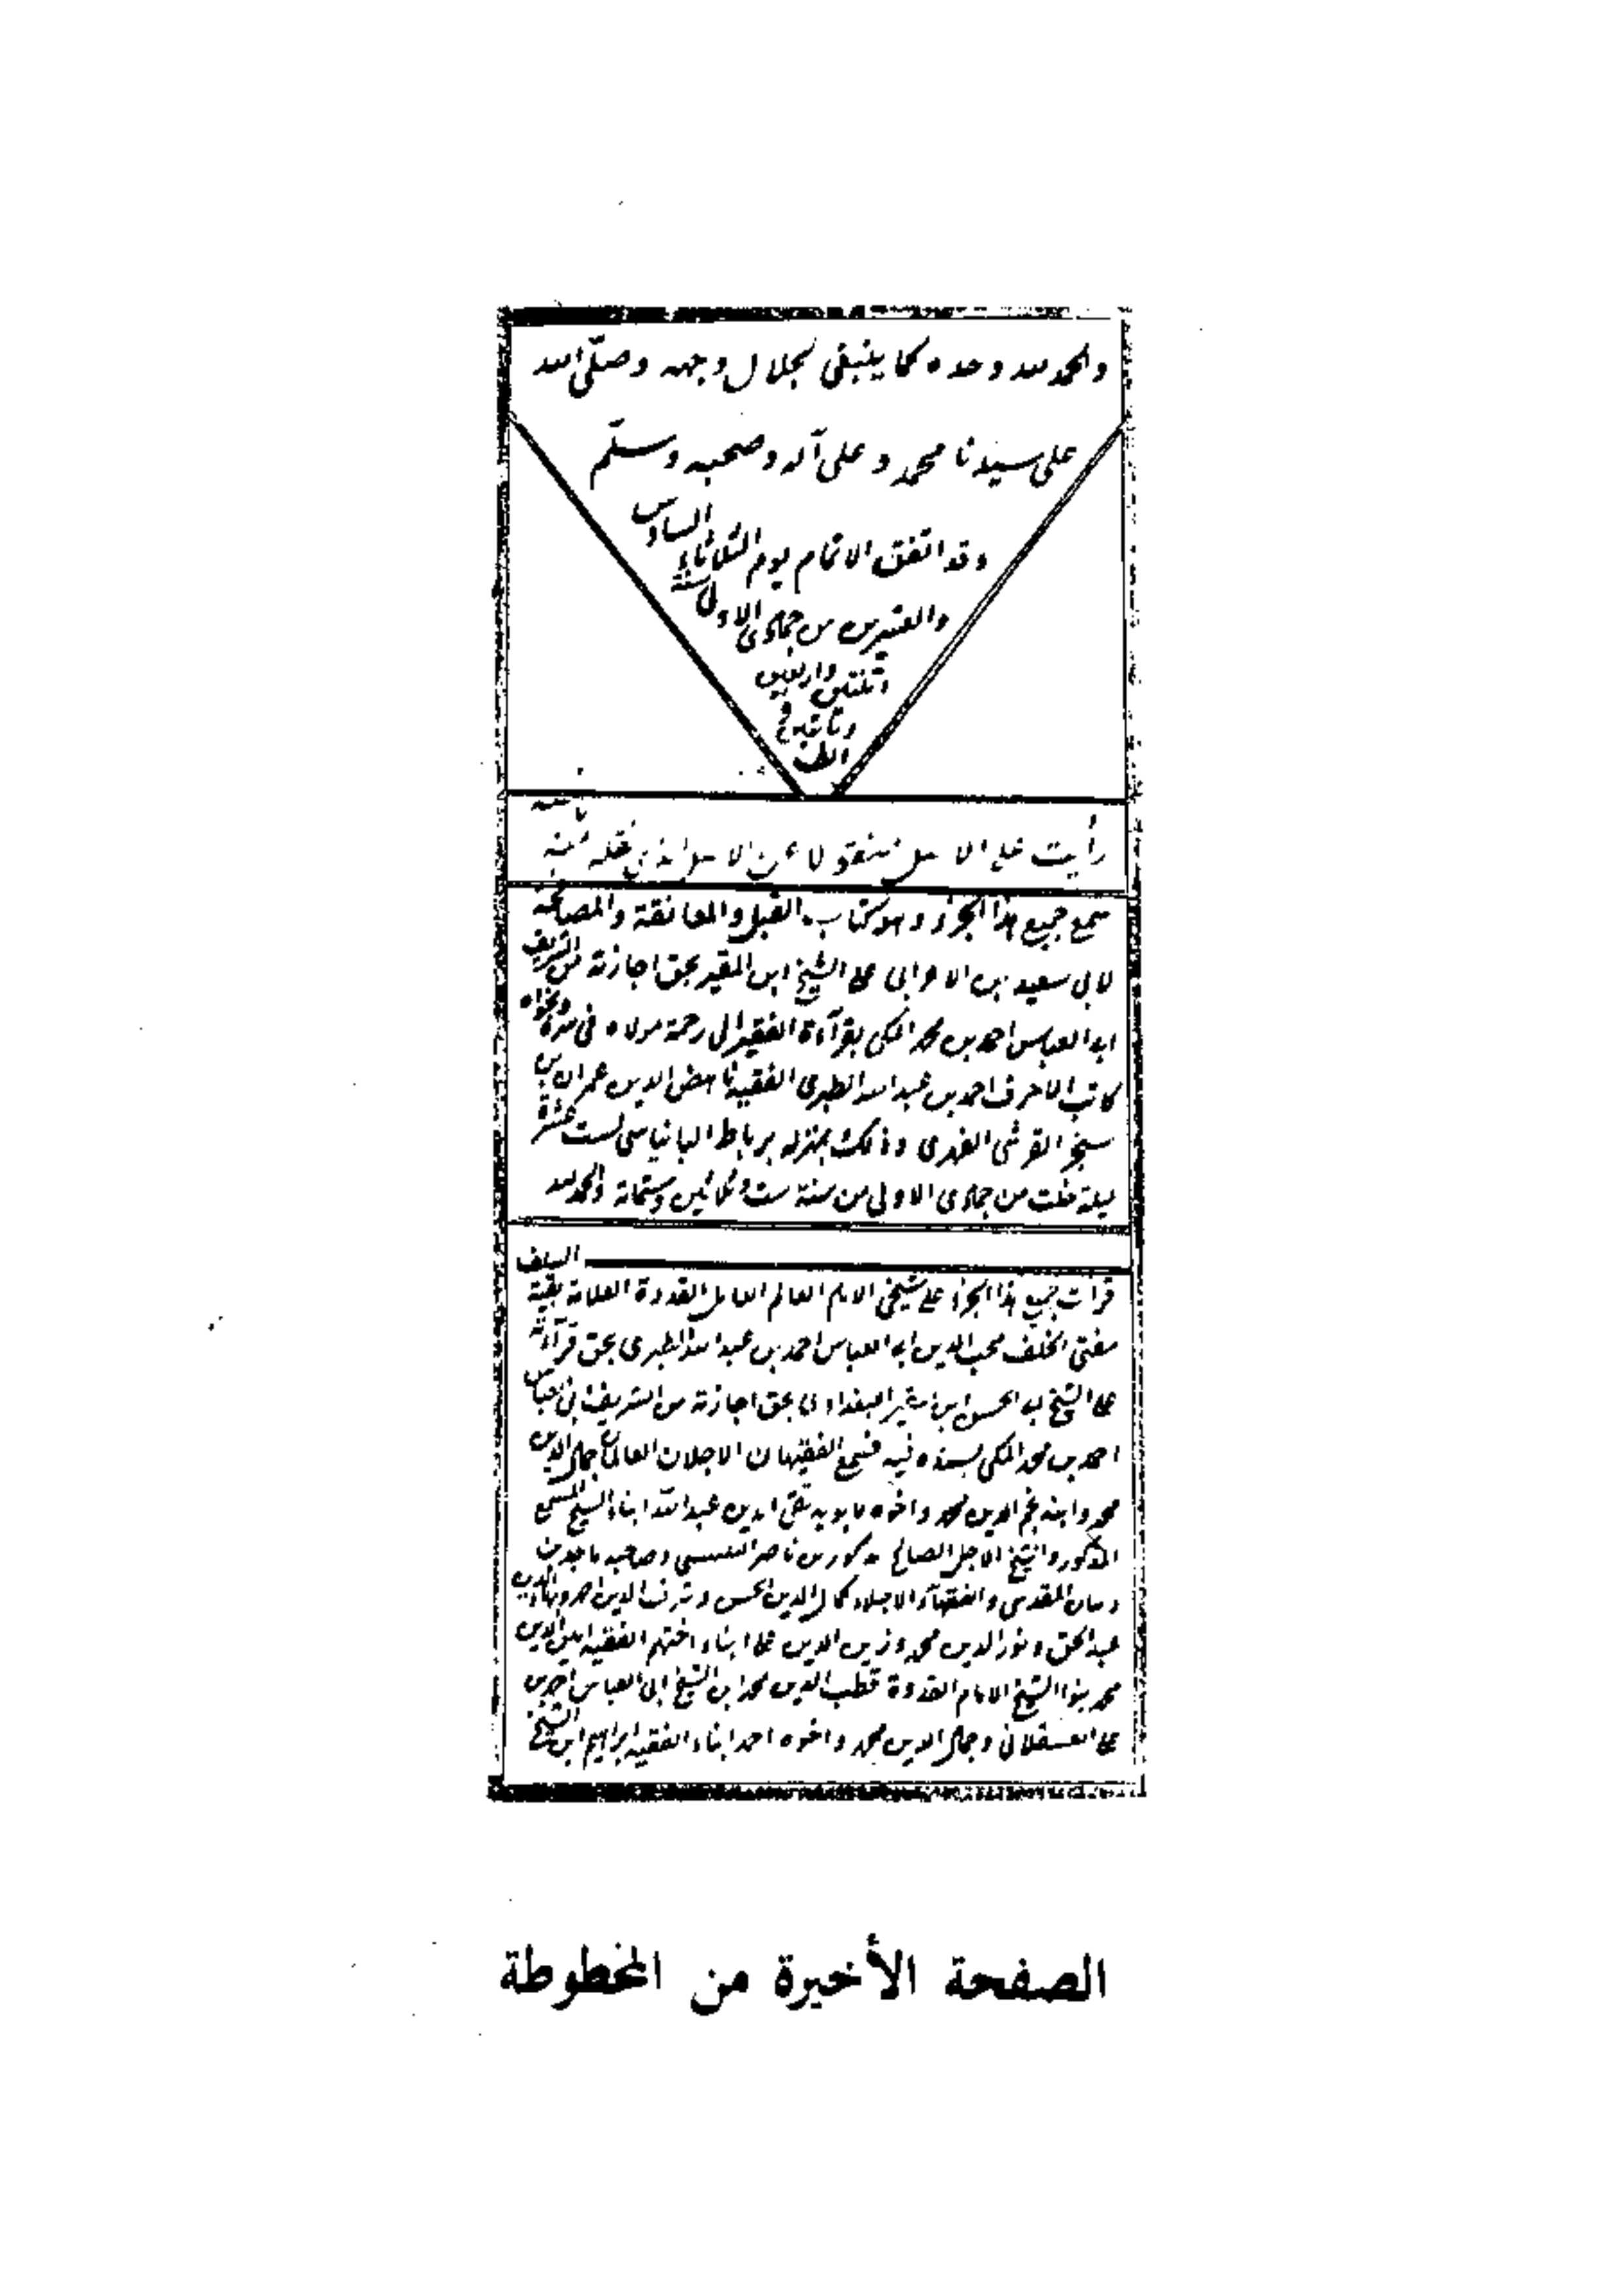 والحمد لله وحده كما ينبغي لجلال وجهه وصلّى الله
على سيدنا محمد وعلى آله وصحبه وسلّم
وقد اتفق الاتمام يوم الثلاثاء السادس
والعشرين من جمادى الاولى سنة
واربعين
الف
رأيت على الاصل منقولا عن الاصل الذي نقله منه
سمع جميع هذا الجزء وهو كتاب القبل والمعانقة والمصافحة
لابي سعيد بن الاعرابي على الشيخ ابن المقير بحق اجازته من الشريف
ابي العباس احمد بن محمد المكي بقرآءة الفقير الى رحمة مولاه
كاتب الاحرف احمد بن عبد الله الطبري الفقيه ناهض الدين عمران بن
القرشي الفهري وذلك بمنزله برباط البانياسي لست عشرة
ليلة خلت من جمادى الاولى من سنة ست وثلاثين وستمائة والحمد لله
قرات جميع هذا الجزء على شيخي الامام العالم العامل القدوة العلامة بقية السلف
مفتي الخلف محب الدين ابي العباس احمد بن عبد الله الطبري بحق قرآءته
على الشيخ ابي الحسن ابن المقير البغدادي بحق اجازته من الشريف ابي العباس
احمد بن محمد المكي بسنده فيه فسمع الفقيهان الاجلان العالمان جمال الدين
محمد وابنه نجم الدين محمد واخوه تقي الدين عبد الله ابناء الشيخ المسمع
المذكور والشيخ الاجل الصالح بن ناصر وصاحبه
المقدسي والفقهآء الاجلاء كمال الدين الحسن وشرف الدين
عبد الحق ونور الدين محمد وزين الدين على ابناء اختهم الفقيه امين الدين
محمد بنوا الشيخ الامام القدوة قطب الدين محمد ابن الشيخ ابي العباس احمد بن
على العسقلاني وجمال الدين محمد واخوه احمد ابناء الفقيه ابراهيم ابن الشيخ
الصفحة الأخيرة من المخطوطة